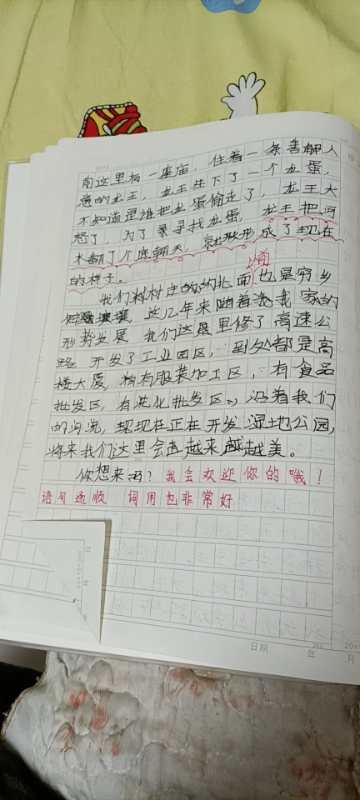 前这里有一座庙,住着一条善解人
意的龙王,龙王生下了一个龙蛋,
不知道是谁把龙蛋偷走了,龙王大
怒了,为了要寻找龙蛋,龙王把河
水翻了个底朝天,就形成了现在
的样子。
我们村村庄的的北面也是穷乡
这几年来随着 家的
形势发展,我们这里修了高速公
路,开发了工业园区,到处都是高
楼大厦,有服装加工区,有食品
批发区,有花化批发区。沿着我们
的沟沿,现在正在开发湿地公园,
将来我们这里会越来越美。
你想来吗?我会欢迎你的哦!
语句通顺 词用也非常好
日期 年 月